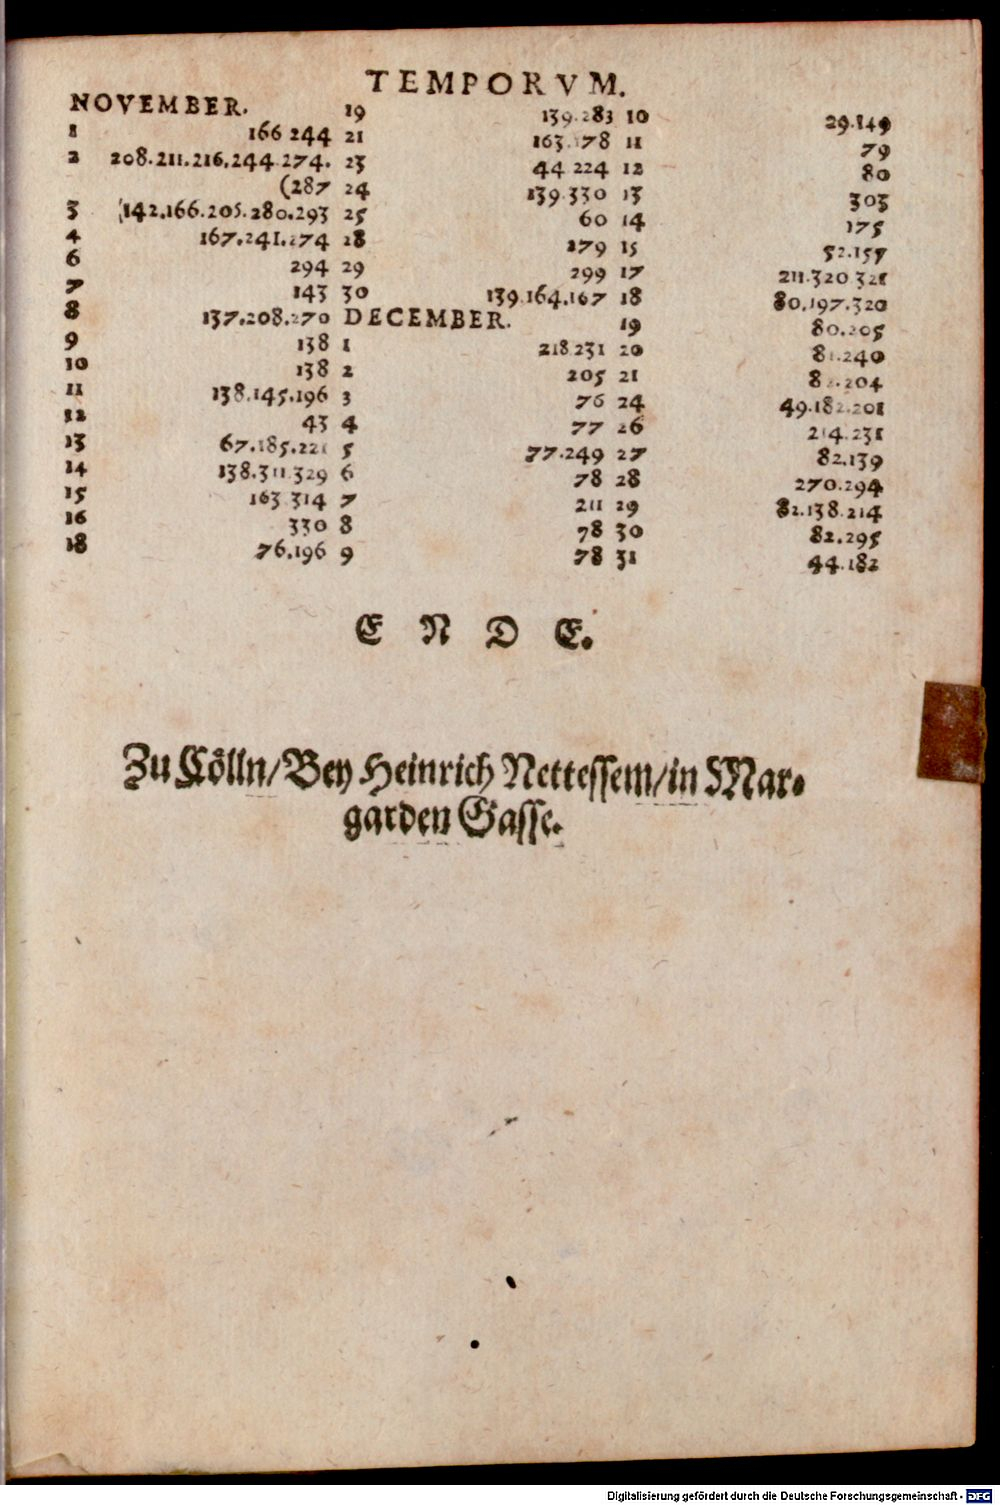 TEMPORVM.
NOVEMBER.
1 166 244
2 208.211.216.244.274.
(287
3 142.166.205.280.293
4 167.241.274
6 294
7 143
8 137.208.270
9 138
10 138
11 138.145.196
12 43
13 67.185.221
14 138.311.329
15 163 314
16 330
18 76.196
19 139.283
21 163.178
23 44 224
24 139.330
25 60
28 279
29 299
30 139.164.167
DECEMBER.
1 218.231
2 205
3 76
4 77
5 77.249
6 78
7 211
8 78
9 78
10 29.149
11 79
12 80
13 303
14 175
15 52.157
17 211.320 321
18 80.197.320
19 80.205
20 81.240
21 82.204
24 49.182.201
26 214.231
27 82.139
28 270.294
29 82.138.214
30 82.295
31 44.182
E N D E.
Zu Cölln/Bey Heinrich Nettessem/in Mar-
garden Gasse.
Digitalisierung gefördert durch die Deutsche Forschungsgemeinschaft - DFG